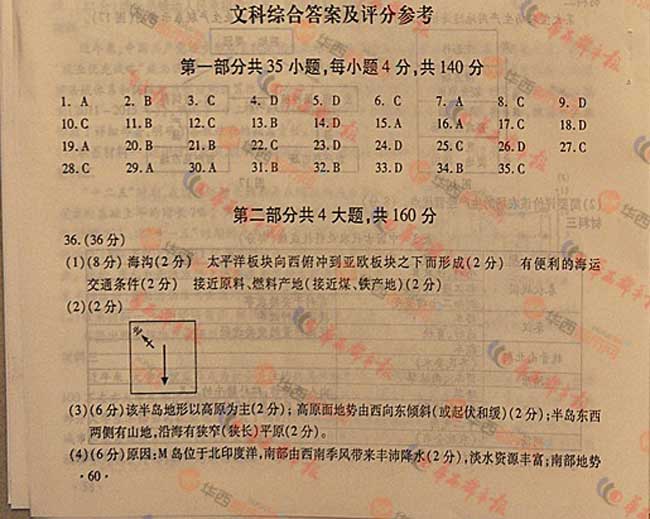 文科综合答案及评分参考
第一部分共35小题,每小题4分,共140分
1. A 2. B 3. C 4. D 5. D 6. C 7. A 8. C 9. D
10. C 11. B 12. C 13. B 14. D 15. A 16. A 17. C 18. D
19. A 20. B 21. B 22. C 23. D 24. D 25. C 26. D 27. C
28. C 29. A 30. A 31. B 32. B 33. D 34. B 35. C
第二部分共4大题,共160分
36. (36分)
(1)(8分) 海沟(2分) 太平洋板块向西俯冲到亚欧板块之下而形成(2分) 有便利的海运
交通条件(2分) 接近原料、燃料产地(接近煤、铁产地)(2分)
(2)(2分)
(3)(6分)该半岛地形以高原为主(2分);高原面地势由西向东倾斜(或起伏和缓)(2分);半岛东西
两侧有山地,沿海有狭窄(狭长)平原(2分)。
(4)(6分)原因:M岛位于北印度洋,南部由西南季风带来丰沛降水(2分),淡水资源丰富;南部地势
·60·